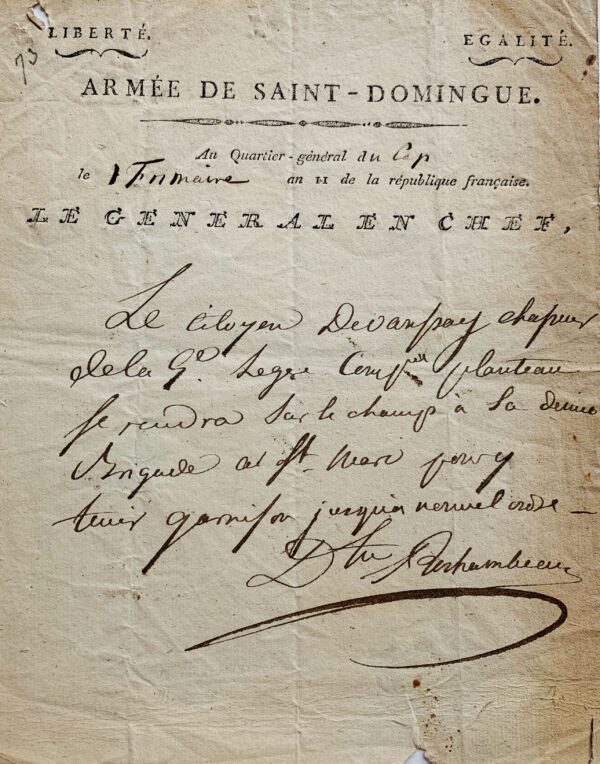 73
LIBERTÉ.
EGALITÉ.
ARMÉE DE SAINT-DOMINGUE.
Au Quartier-général du Cap
le 1 Frimaire an 11 de la république française.
LE GENERAL EN CHEF,
Le citoyen Devanssay chasseur
de la Gde Legere Compnie planteau
se rendra sur le champ à Sa demie
Brigade at St. Marc pour y
tenir garnison jusqu'a nouvel ordre —
Dtn Rochambeau